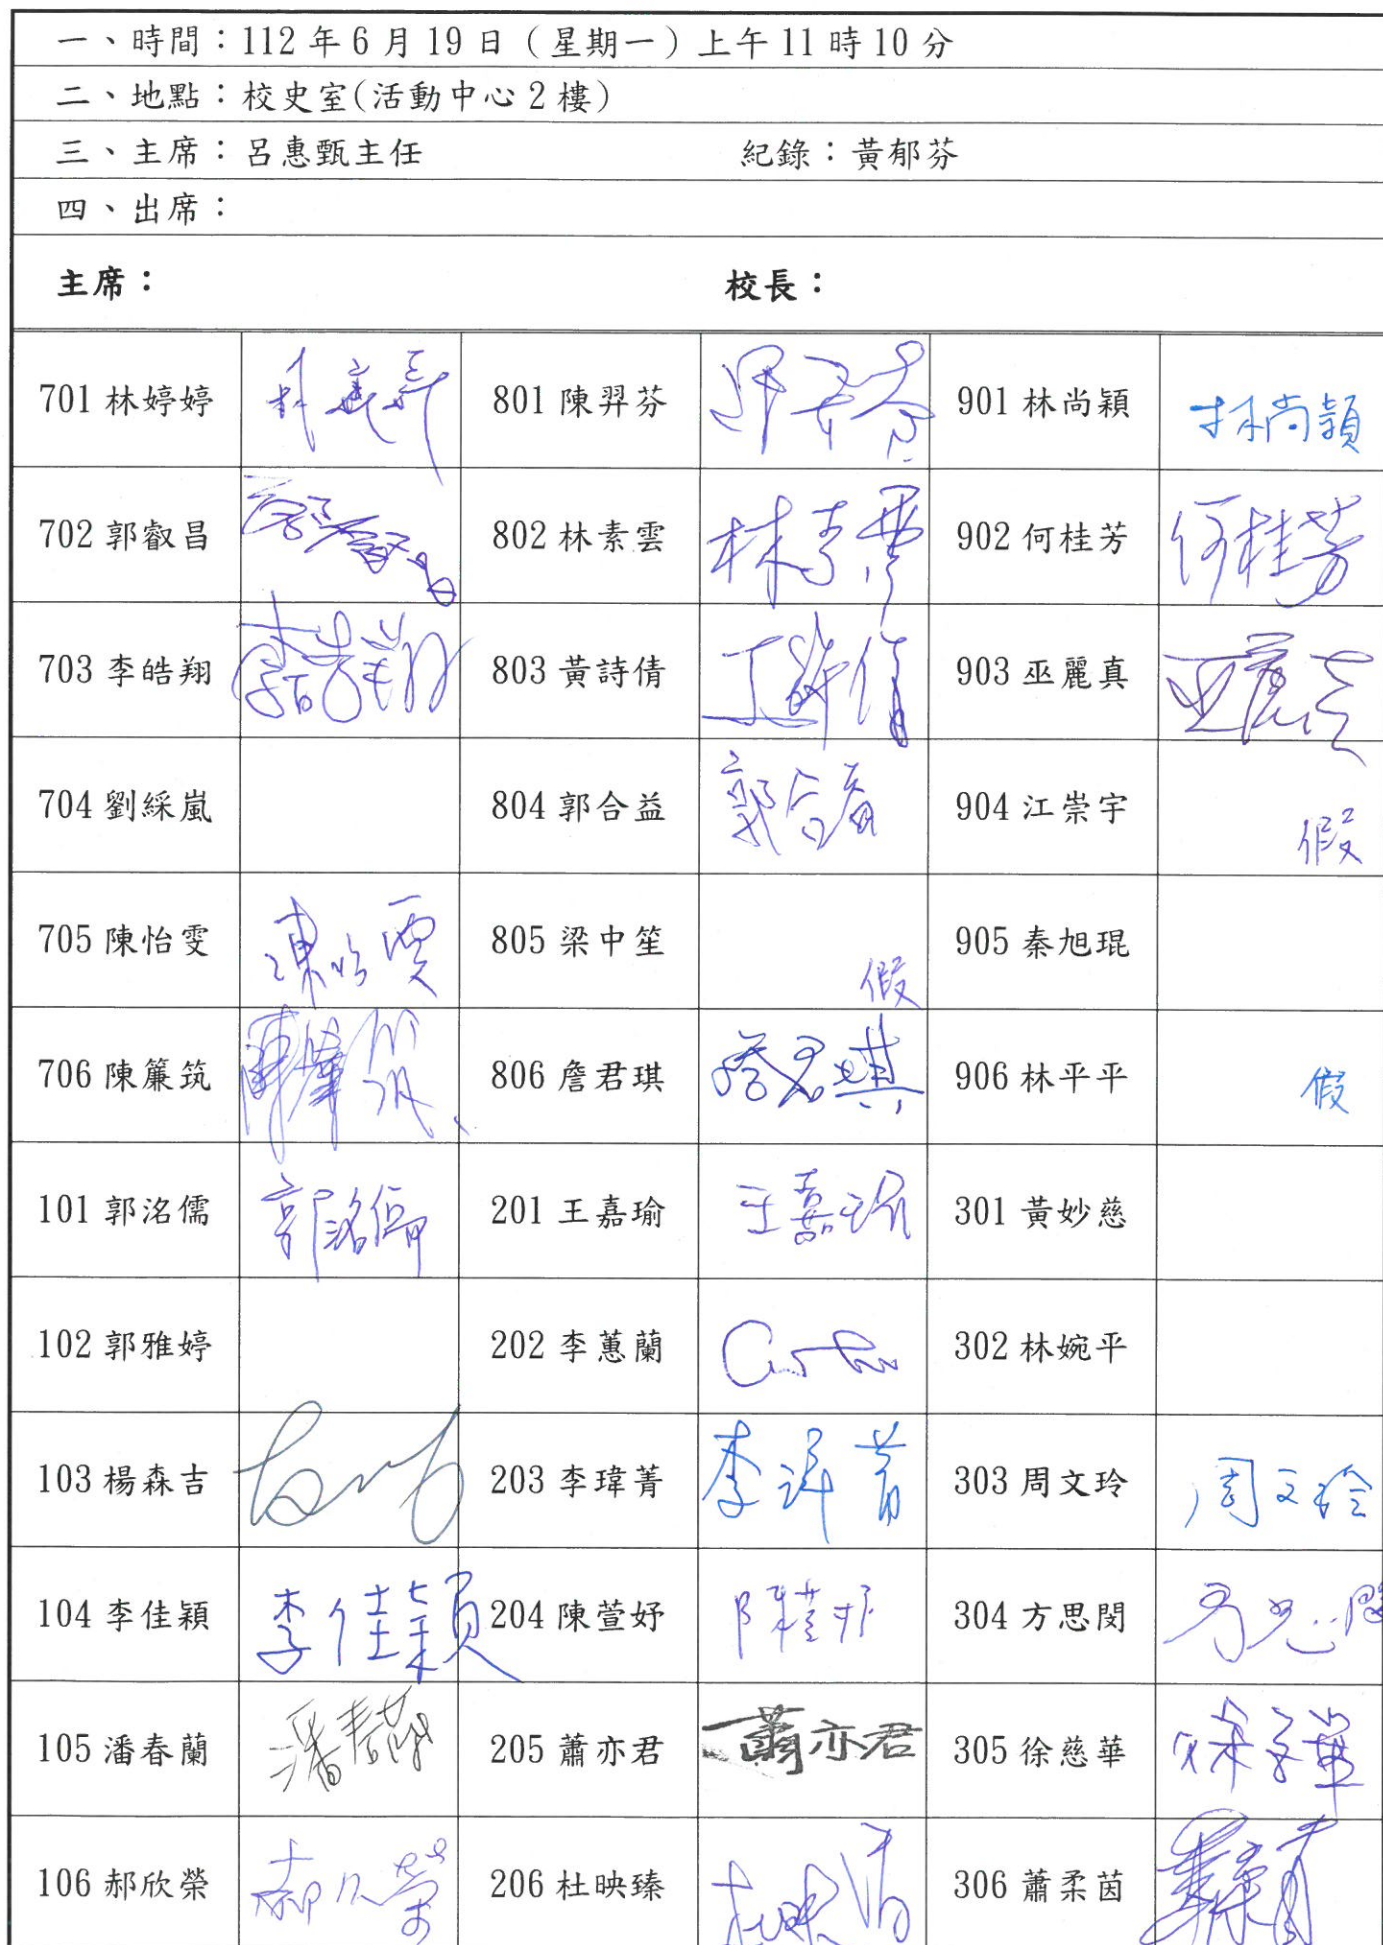 一、時間：112年6月19日（星期一）上午11時10分
二、地點：校史室(活動中心2樓)
三、主席：呂惠甄主任 紀錄：黃郁芬
四、出席：
主席： 校長：
701 林婷婷 801 陳羿芬 901 林尚穎 林尚穎
702 郭叡昌 802 林素雲 林素雲 902 何桂芳 何桂芳
703 李皓翔 李皓翔 803 黃詩倩 903 巫麗真 巫麗真
704 劉綵嵐 804 郭合益 郭合益 904 江崇宇 假
705 陳怡雯 陳怡雯 805 梁中笙 假 905 秦旭琨
706 陳簾筑 806 詹君琪 詹君琪 906 林平平 假
101 郭洺儒 郭洺儒 201 王嘉瑜 王嘉瑜 301 黃妙慈
102 郭雅婷 202 李蕙蘭 302 林婉平
103 楊森吉 203 李瑋菁 李瑋菁 303 周文玲 周文玲
104 李佳穎 李佳穎 204 陳萱妤 陳萱妤 304 方思閔 方思閔
105 潘春蘭 潘春蘭 205 蕭亦君 蕭亦君 305 徐慈華 徐慈華
106 郝欣榮 郝欣榮 206 杜映臻 306 蕭柔茵